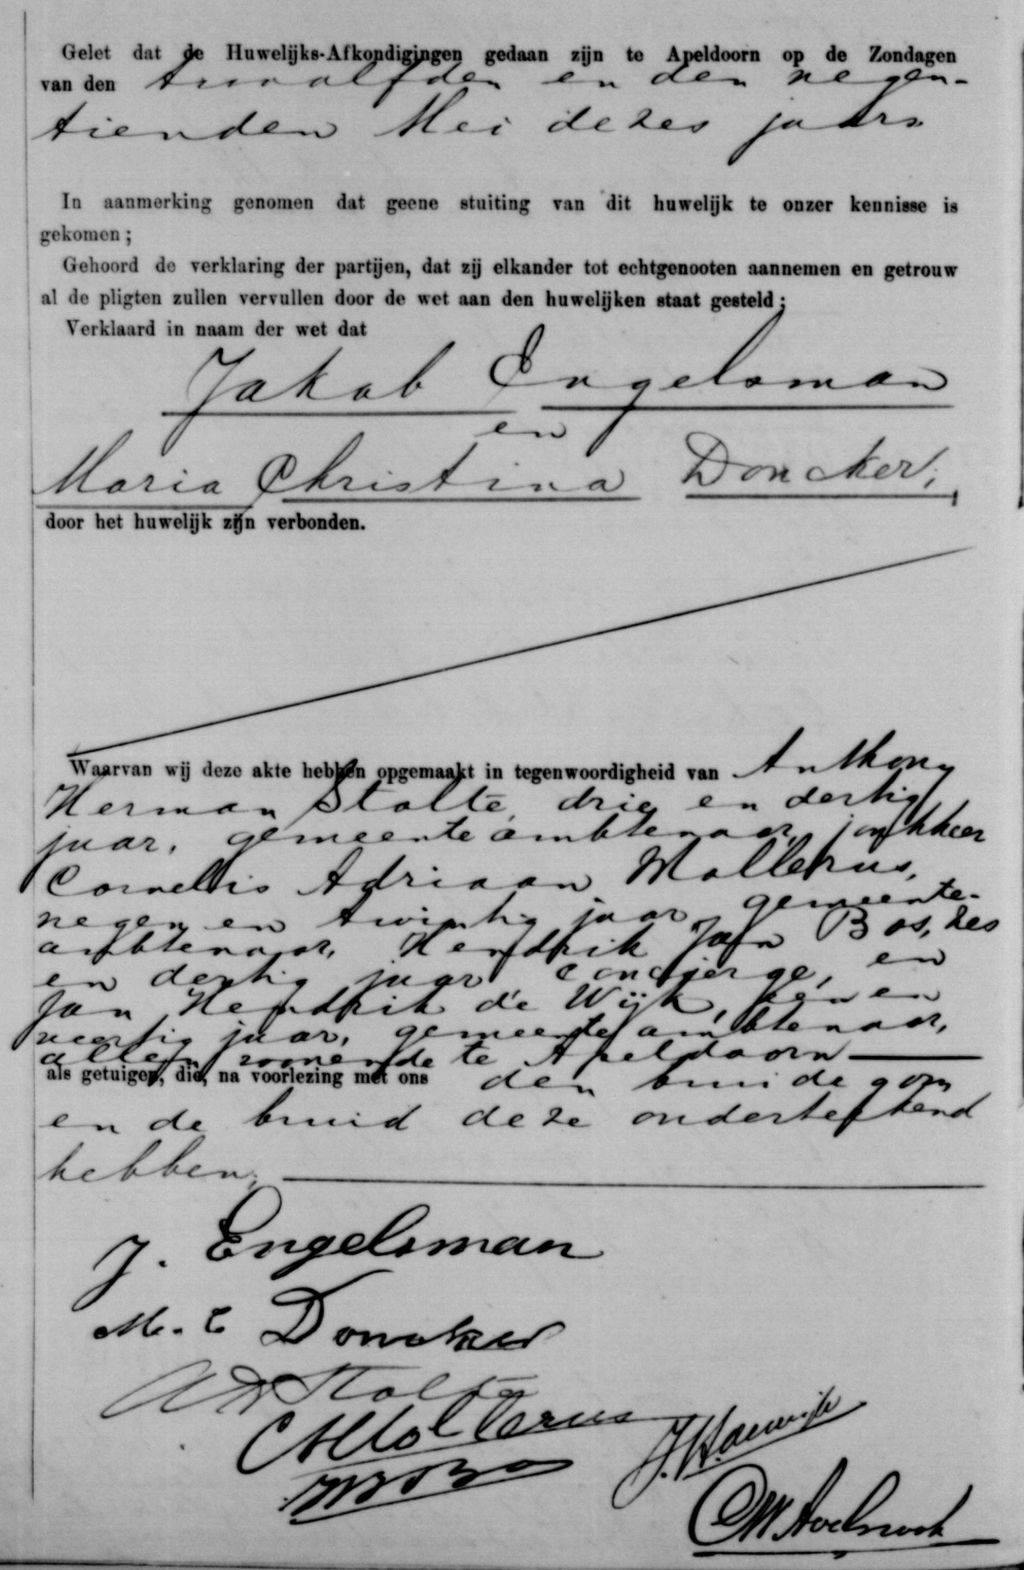 Gelet dat de Huwelijks-Afkondigingen gedaan zijn te Apeldoorn op de Zondagen
van den twaalfden en den negen-
tienden Mei dezes jaars
In aanmerking genomen dat geene stuiting van dit huwelijk te onzer kennisse is
gekomen;
Gehoord de verklaring der partijen, dat zij elkander tot echtgenooten aannemen en getrouw
al de pligten zullen vervullen door de wet aan den huwelijken staat gesteld;
Verklaard in naam der wet dat
Jakob Engelsman
en
Maria Christina Doncker,
door het huwelijk zijn verbonden.
Waarvan wij deze akte hebben opgemaakt in tegenwoordigheid van Anthony
Herman Stolte, drie en dertig
jaar, gemeente ambtenaar, jonkheer
Cornelis Adriaan Mollerus,
negen en twintig jaar, gemeente-
ambtenaar, Hendrik Jan Bos, zes
en dertig jaar concierge, en
Jan Hendrik de Wijk, een en
veertig jaar, gemeente ambtenaar,
allen wonende te Apeldoorn
als getuigen, die, na voorlezing met ons den bruidegom
en de bruid deze onderteekend
hebben;
J. Engelsman
M. C Doncker
AH Stolte
CAMollerus
HJBos
J.H.dewijk